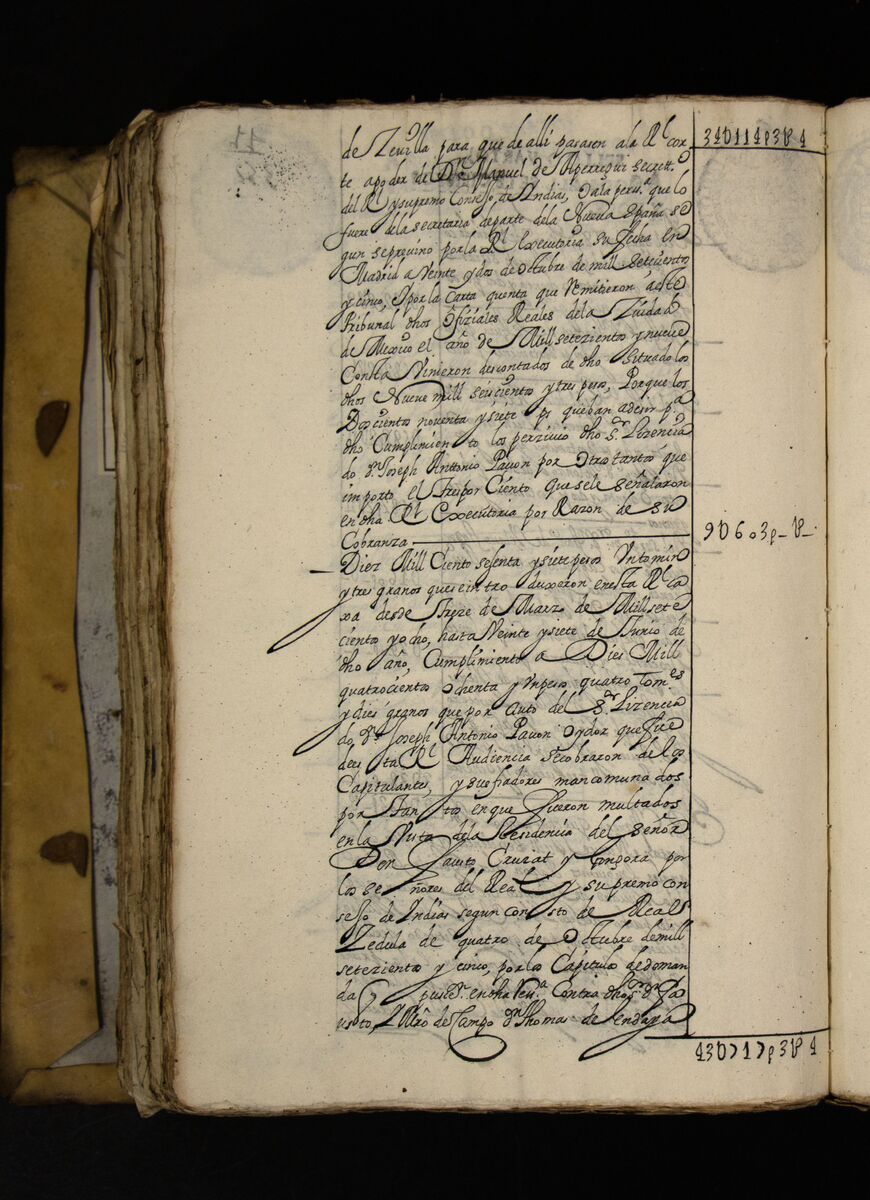 34U114p3t4
de Zevilla para que de alli pasasen ala Rl cor
te apoder de Dn Manuel de Aperregui secrett.o
del Rl y supremo Consejo de Indias, o ala pers.a que lo
fuere dela secretaria de parte dela Nueva España se
gun se previno por la Rl Executoria su fecha en
Madrid a Veinte y dos de octubre de mill setecientos
y cinco, y por la Carta quenta que Remitieron a este
Tribunal dhos ofiziales Reales dela Ziudad
de Mexico el año de Mill setezientos y nueve
Consta Vinieron descontados de dho situado los
dhos Nueve mill seiscientos y tres pesos, Porque los
Doscientos noventa y siete ps que ban a desir p.a
dho Cumplimiento los perzivio dho S.or Lizencia
do Dn Joseph Anttonio Pavon por otro tanto que
importo el tres por Ciento que se le señalaron
en dha Rl Executoria por Razon de su
Cobranza
9U603p-t-
Diez Mill Ciento sesenta y siete pesos Un tomin
y tres granos que se introduxeron en esta Rl ca
xa desde treze de Marzo de Mill sete
cientos y ocho, hasta Veinte y siete de Junio de
dho año, Cumplimiento a Dies Mill
quatrocientos ochenta y Un peso quatro tom.es
y dies granos que por auto del S.or Lizencia
do Dn Joseph Antonio Pavon oydor que fue
de esta Rl Audiencia se cobraron de los
Capitulantes, y sus fiadores mancomunados
por tantos en que fueron multados
en la Vista dela Residencia del señor
Don Fausto Cruzat y Gongora por
los señores del Real y supremo con
sejo de Indias segun consto de Real
Zedula de quatro de octubre de mill
setezientos y cinco, por los Capitulos de deman
da q pus.on en dha Res.a Contra dhos S.r Dn Fa
usto, Mro de Campo Dn Thomas de Endaya
43U717p3t4